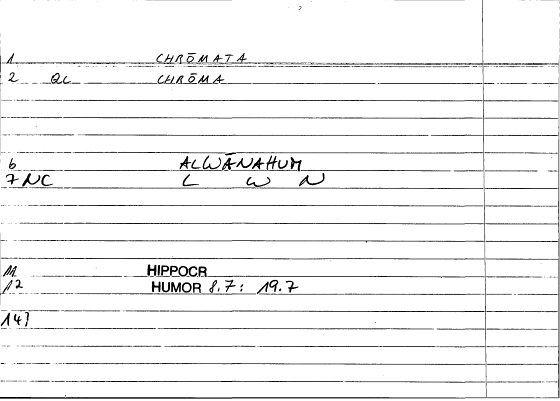 1 CHRŌMATA
2 QC CHRŌMA
6 ALWĀNAHUM
7 NC L W N
11 HIPPOCR
12 HUMOR 8.7: 19.7
147